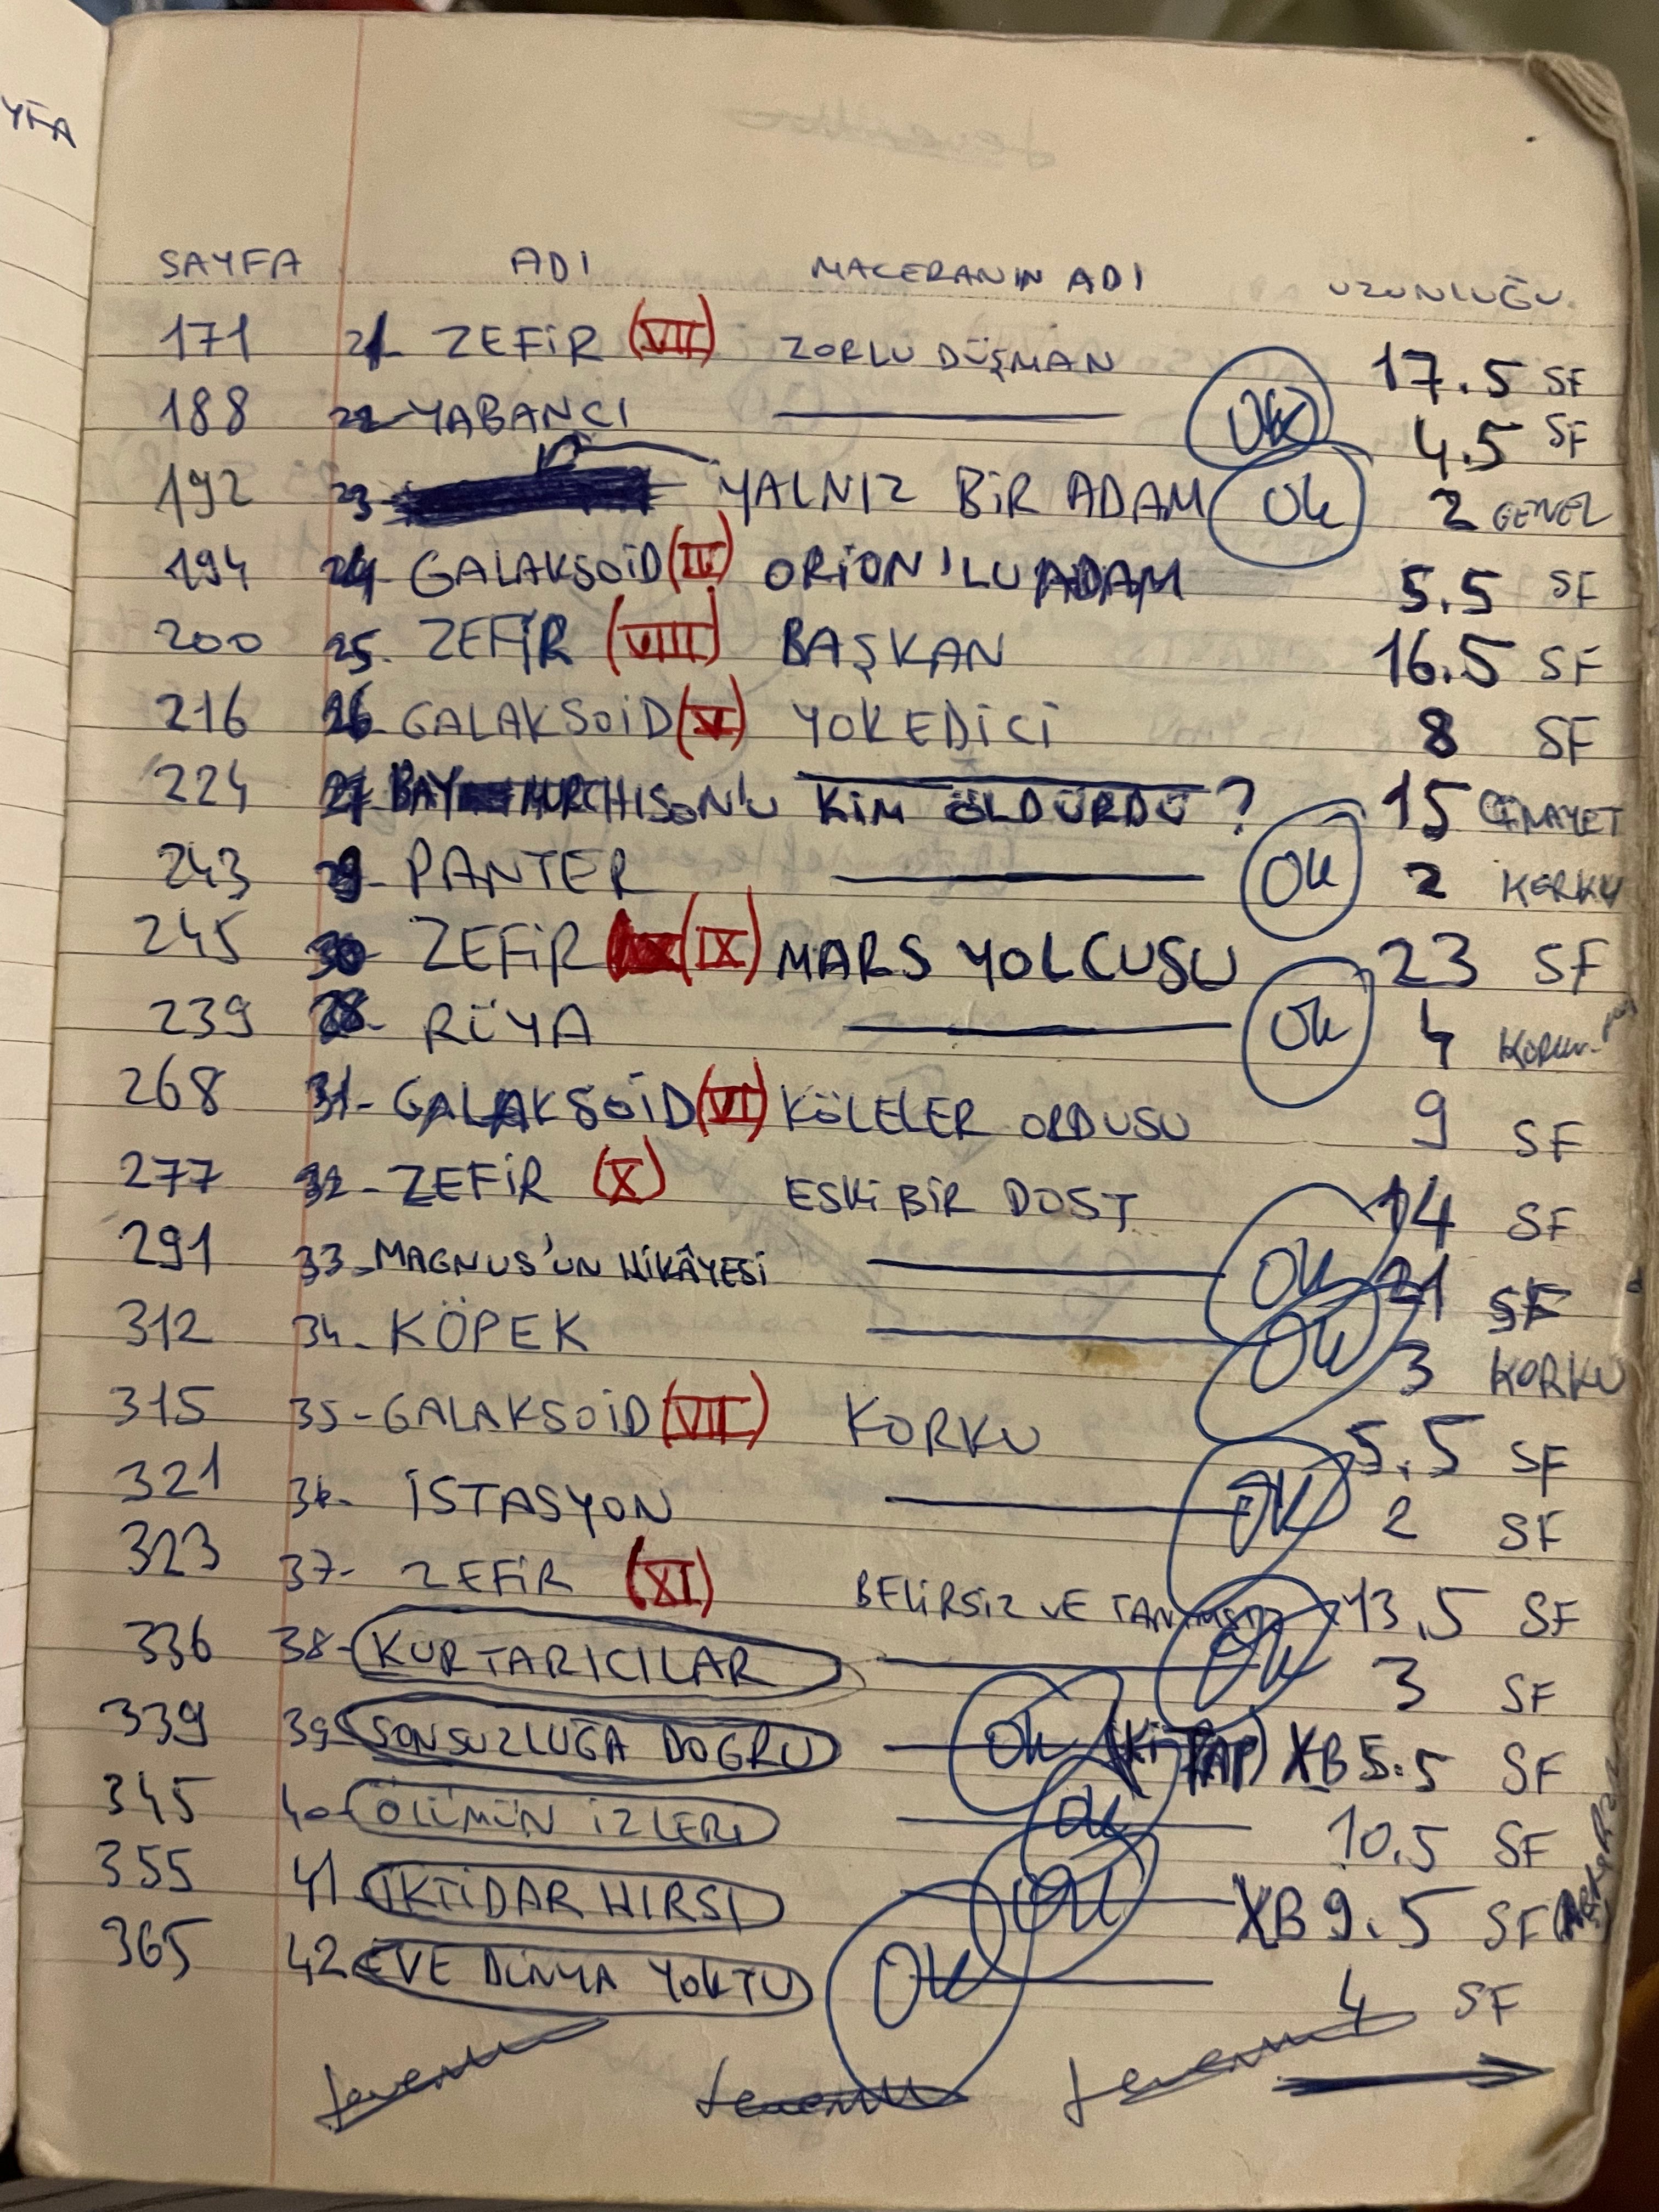 YFA
SAYFA ADI MACERANIN ADI UZUNLUĞU.
171 21- ZEFİR (VII) ZORLU DÜŞMAN 17.5 SF
188 22- YABANCI OK 4.5 SF
192 23- YALNIZ BİR ADAM Ok 2 GENEL
194 24- GALAKSOİD (IV) ORİON'LU ADAM 5.5 SF
200 25. ZEFİR (VIII) BAŞKAN 16.5 SF
216 26- GALAKSOİD (V) YOKEDİCİ 8 SF
224 27- BAY MURCHISON'U KİM ÖLDÜRDÜ? 15 CİNAYET
243 29- PANTER Ok 2 KORKU
245 30- ZEFİR (IX) MARS YOLCUSU 23 SF
239 28- RÜYA Ok 4 KORKU
268 31- GALAKSOİD (VI) KÖLELER ORDUSU 9 SF
277 32- ZEFİR (X) ESKİ BİR DOST 14 SF
291 33- MAGNUS'UN HİKÂYESİ Ok 21 SF
312 34- KÖPEK Ok 3 KORKU
315 35- GALAKSOİD (VII) KORKU 5.5 SF
321 36- İSTASYON OK 2 SF
323 37- ZEFİR (XI) BELİRSİZ VE TANIMSIZ 13.5 SF
336 38- KURTARICILAR Ok 3 SF
339 39- SONSUZLUĞA DOĞRU Ok (KİTAP) XB 5.5 SF
345 40- ÖLÜMÜN İZLERİ Ok 10.5 SF
355 41 İKTİDAR HIRSI Ok XB 9.5 SF
365 42 EVE DÜNYA YOKTU Ok 4 SF